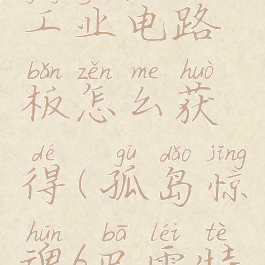 工业电路
bǎn zěn me huò
板怎么获
dé gū dǎo jīng
得(孤岛惊
hún bā léi tè
魂(巴雷特